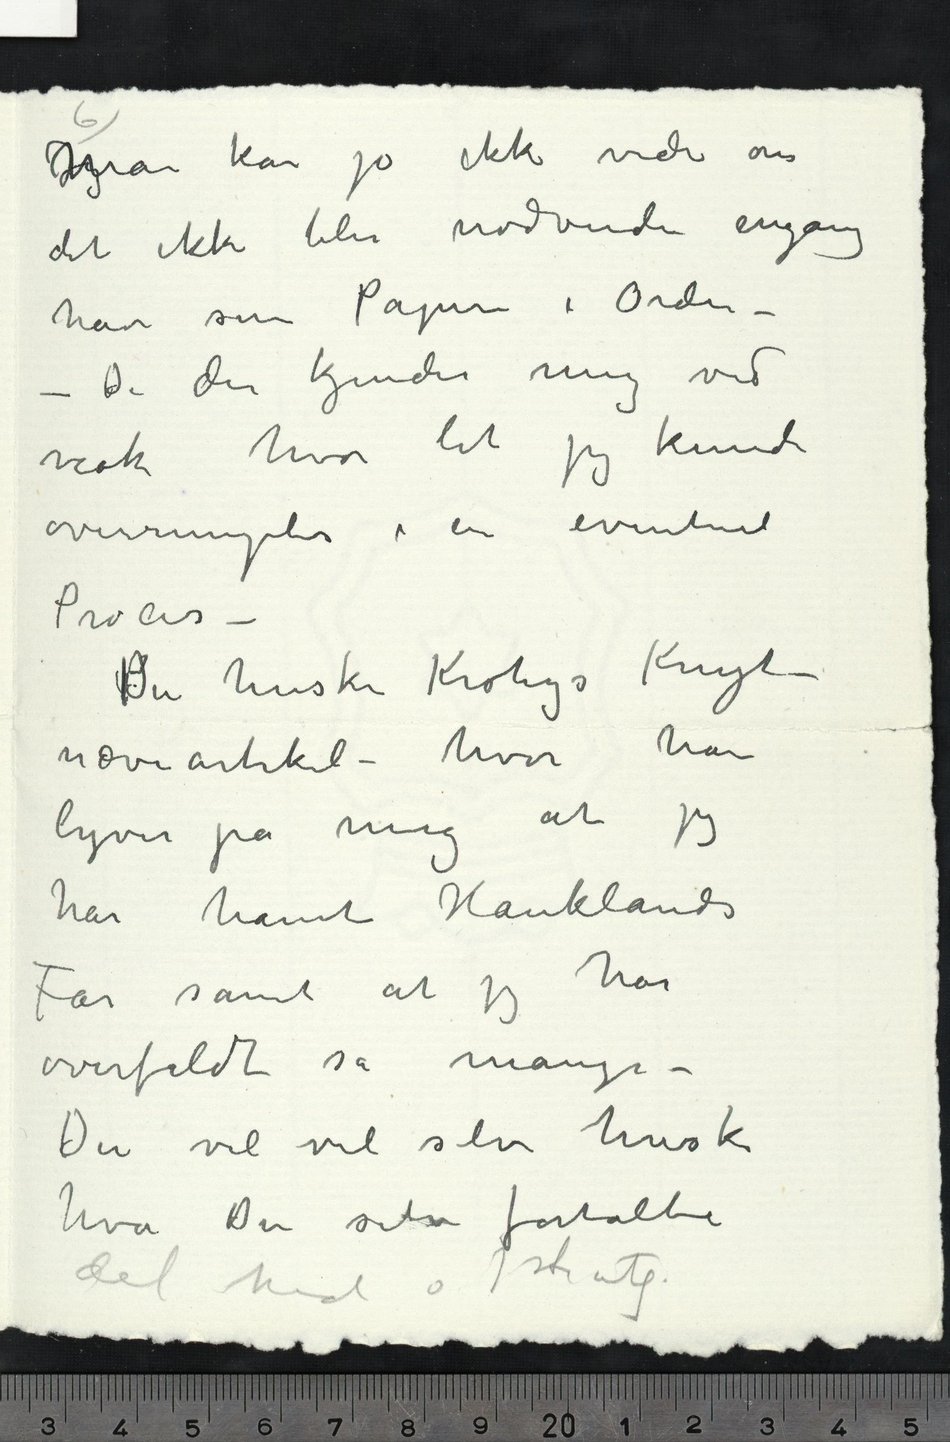 6)
Man kan jo ikke vide om
det ikke blir nødvendi engang
have sine Papirer i Orden –
– De der kjender mig ved
nok hvor let jeg kunde
overrumples i en eventuel
Proces –
Du husker Krohgs Knyt-
næveartikel – hvor han
lyver på mig at jeg
har hamt Hauklands
Far samt at jeg har
overfaldt så mange –
Du vil vel selv huske
hva Du selv fortalte